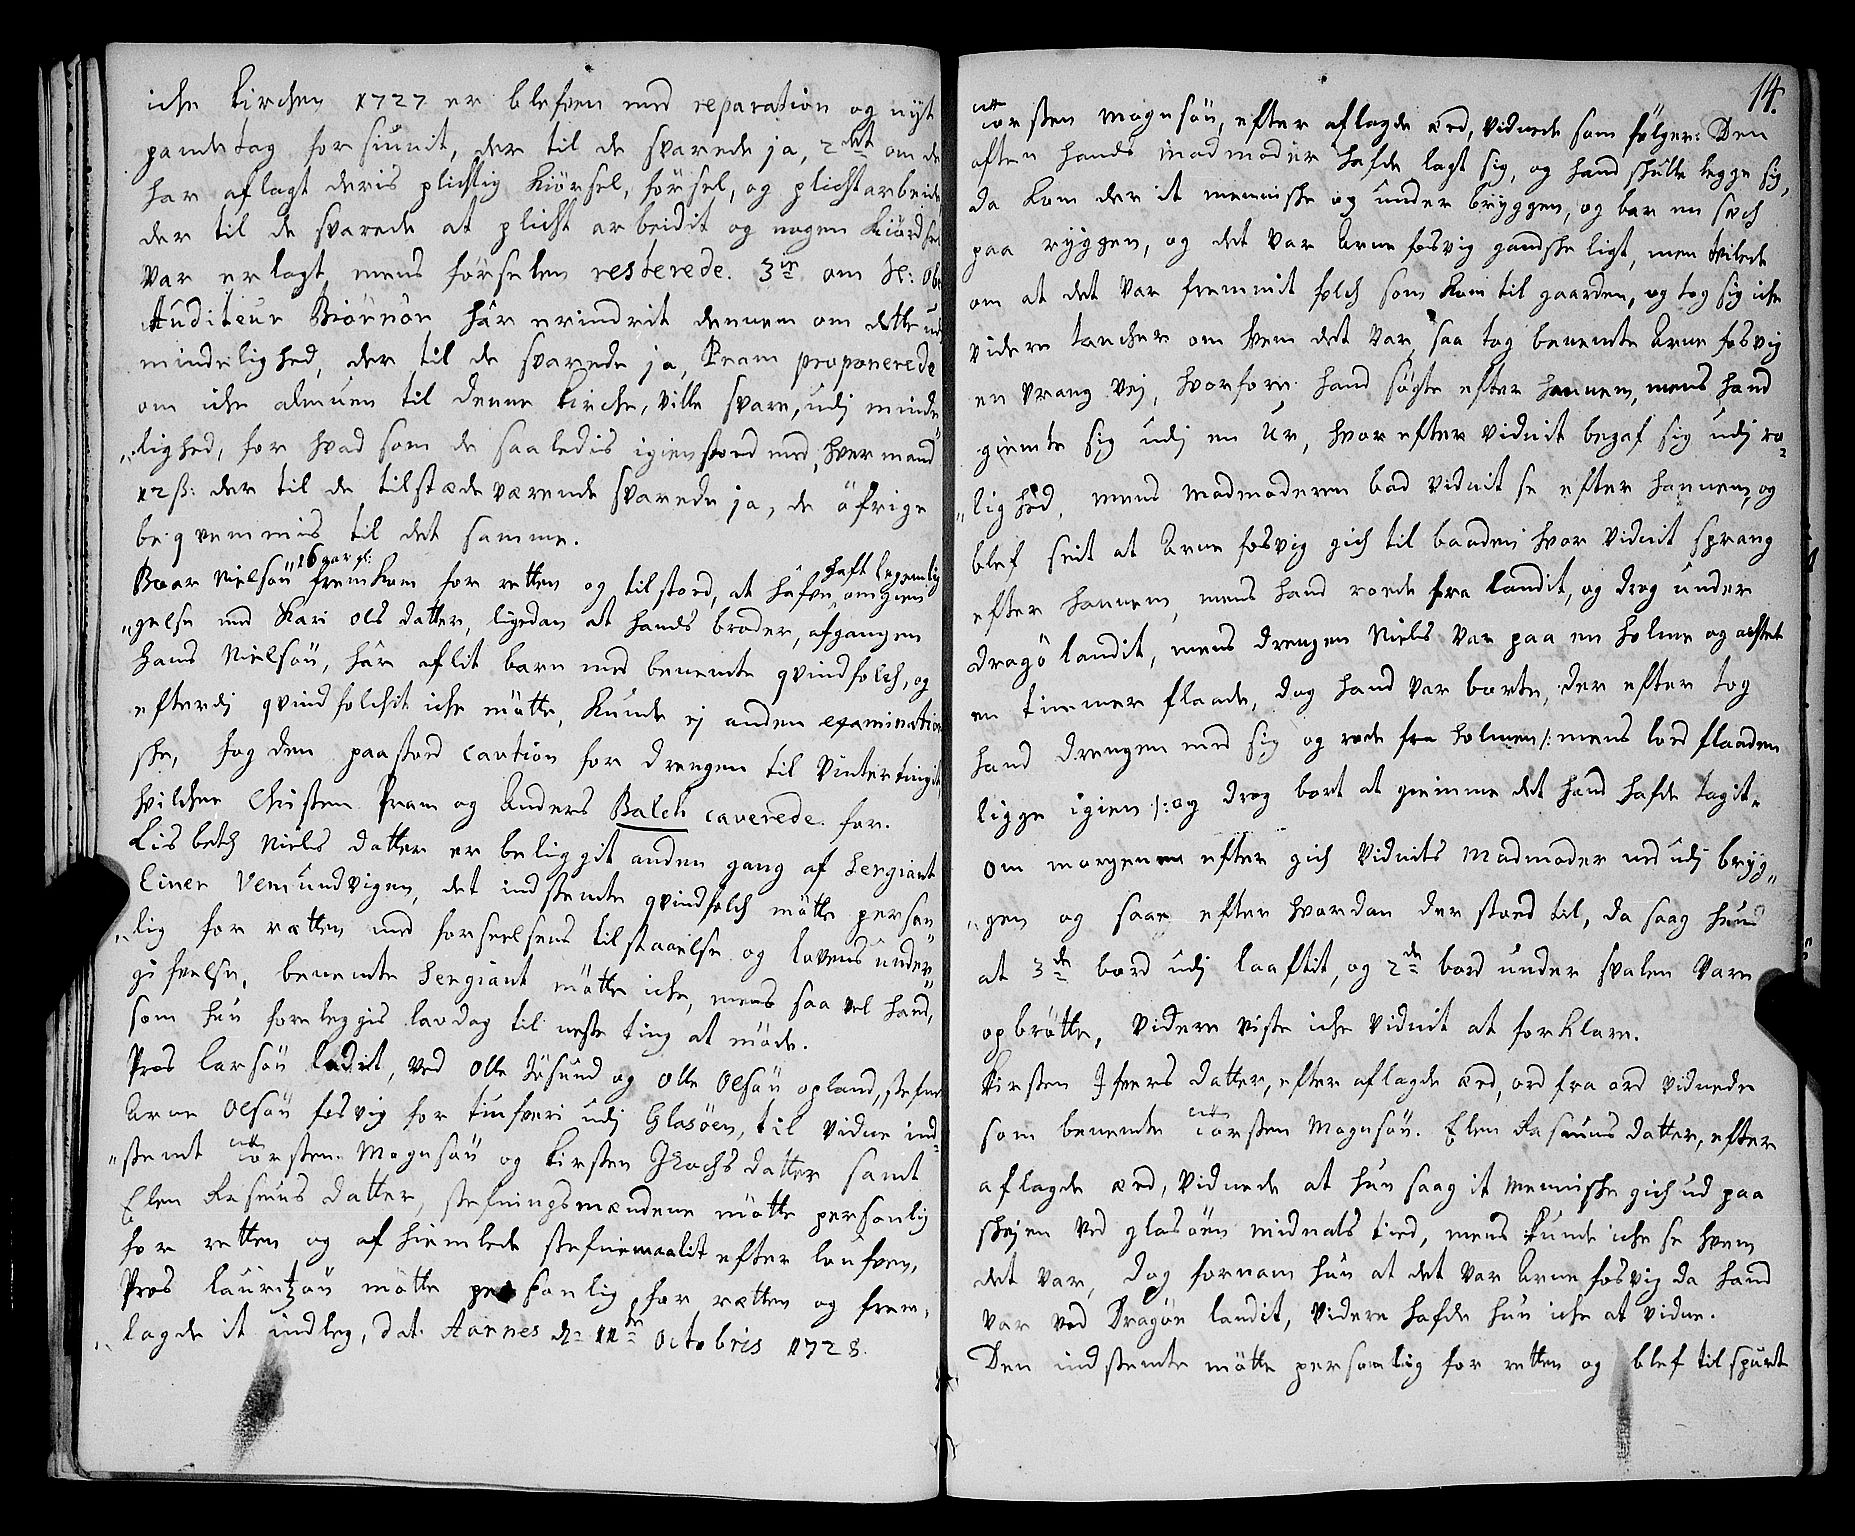 iche Kirchen 1727 er blefven med reparation og nyt
pandetag forsiunit, der til de svarede ja, 2det om de
har aflagt deris plichtig Kiörsel, försel, og plichtarbeide,
der til de svarede at plicht arbeidit og nogen Kiördsel
var erlagt mens förselen resterede. 3die om H: Ober
Auditeur Biörnör har erindrit dennem om dette udj
mindelighed, der til de svarede ja, Pram proponerede
om iche almuen til denne Kirche, ville svare, udj minde
„lighed, for hvad som de saaledis igienstoed med, hver mand
12 s: der til de tilstædeværende svarede ja, de öfrige
beqvemmis til det samme.
Boar Nielsön 16 aar gl: fremkom for retten og tilstoed, at hafve haft legemlig omgien
„gelse med Kari Ols datter, ligedan at hands broder, afgangen
Hans Nielsön, har aflit barn med benemte qvindfolch, og
efterdj qvindfolchit iche mötte, Kunde ej anden examination
ske, tog den paastoed caution for drengen til Vintertingit,
hvilchen Christen Pram og Anders Balch caverede for.
Lisbeth Niels datter er beliggit anden gang af Sergiant
Einer Vemundvigen, det indstemte qvindfolch mötte person
„lig for rætten med forseelsens tilstaaelse og lovens under
gifvelse, benemte Sergiant mötte iche, mens saa vel hand,
som hun foreleggis lavdag til neste ting at möde.
Pros Larsön ladit, ved Olle Jösund og Olle Olsön opland, stefne
Arne Olsön fosvig for tiufveri udj Glasöen, til vidne ind
„stemt Torsten Mogensön og Kirsten Jsachs datter samt
Elen Rasmus datter, stefningsmændene mötte personlig
for retten og afhiemlede stefnemaalit efter loufven,
Pros Lauritzön mötte personlig for rætten og frem,
„lagde it indleg, dat: Aarnes d: 11de octobris 1728.
14.
Torsten Mognsön, efter aflagde æd, vidnede som fölger: Den
aften hands Madmoder hafde lagt sig, og hand skulle legge sig,
da kom der it menniske og under bryggen, og bar en sæch
paa ryggen, og det var Arne fosvig gandske ligt, men tvilede
om at det var fremmit folch som kom til gaarden, og tog sig iche
videre tancher om hvem det var, saa tog benemte Arne fosvig
en vrang vej, hvorfore hand sögte efter hannem, mens hand
giemte sig udj en Ur, hvor efter vidnit begaf sig udj ro
„lighed, mens Madmoderen bad vidnit se efter hannem, og
blef seit at Arne fosvig gich til baaden hvor vidnit sprang
efter hannem, mens hand roede fra landit, og drog under
dragö landit, mens drengen Niels var paa en holme og achtet
en timmer flaade, dog hand var borte, der efter tog
hand drengen med sig og rode fra holmen /: mens lod flaaden
ligge igien :/ og drog bort at giemme det hand hafde tagit,
om morgenen efter gich vidnits Madmoder ned udj bryg„
„gen og saae efter hvordan der stoed til, da saag hun
at 3de bord udj laaftit, og 2de bord under svalen vare
opbrötte, videre viste iche vidnit at forklare.
Kirsten Jfvers datter, efter aflagde æd, ord fra ord vidnede
som benemte Torsten Mognsön. Elen Rasmus datter, efter
aflagde æd, vidnede at hun saag it Menniske gich ud paa
skejen ved glasöen midnats tied, mens Kunde iche se hvem
det var, dog fornam hun at det var Arne fosvig da hand
var ved Dragöe landit, videre hafde hun iche at vidne.
Den indstemte mötte personlig for retten og blef tilspurt